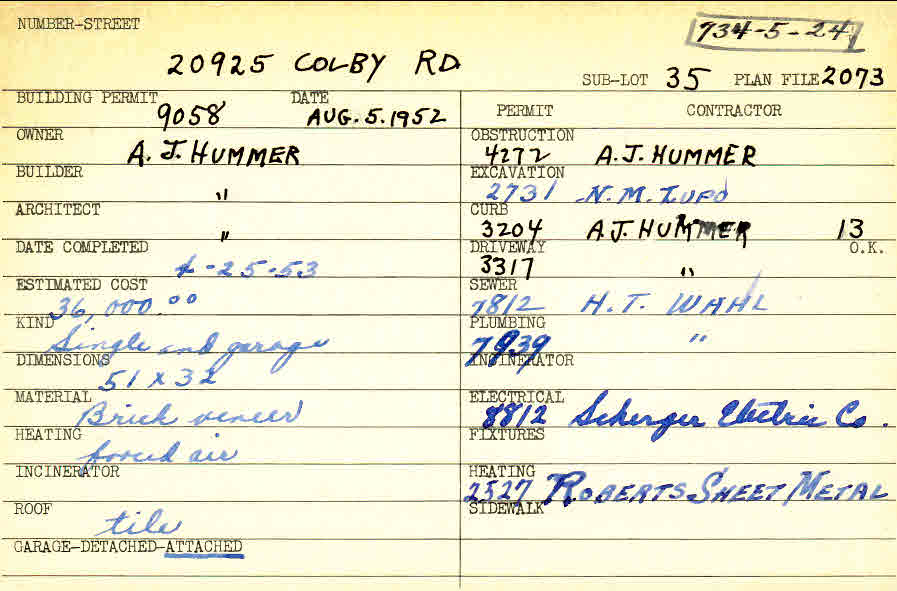 NUMBER-STREET
734-5-24
20925 COLBY RD
SUB-LOT 35 PLAN FILE 2073
BUILDING PERMIT DATE
9058 AUG. 5. 1952
OWNER
A. J. HUMMER
BUILDER
"
ARCHITECT
"
DATE COMPLETED
-25-53
ESTIMATED COST
36,000.00
KIND
Single and garage
DIMENSIONS
51 x 32
MATERIAL
Brick veneer
HEATING
forced air
INCINERATOR
ROOF
tile
GARAGE-DETACHED-ATTACHED
PERMIT CONTRACTOR
OBSTRUCTION
4272 A. J. HUMMER
EXCAVATION
2731 N. M. LUPO
CURB
3204 A J. HUMMER 13
DRIVEWAY O.K.
3317 "
SEWER
7812 H. T. WAHL
PLUMBING
7939 "
INCINERATOR
ELECTRICAL
8812 Scherger Electric Co.
FIXTURES
HEATING
2527 ROBERTS SHEET METAL
SIDEWALK